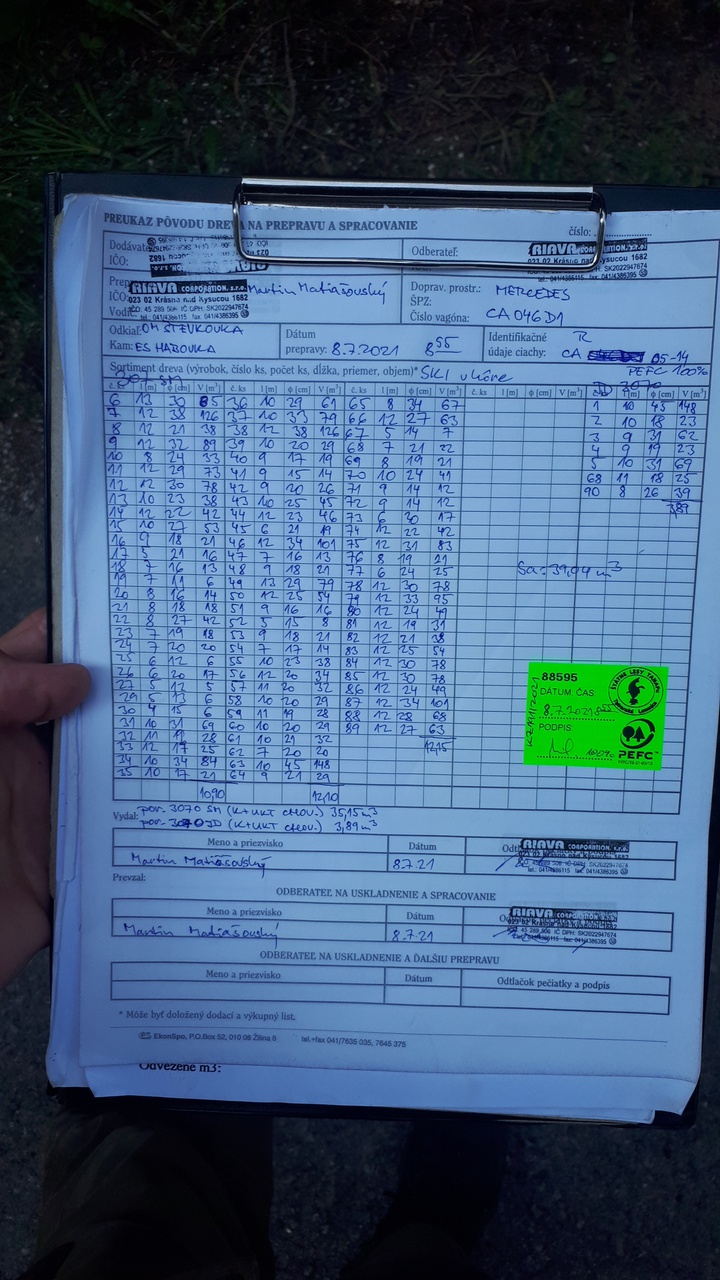 PREUKAZ PÔVODU DREVA NA PREPRAVU A SPRACOVANIE
číslo:
Dodávateľ
IČO:
Odberateľ:
RIAVA CORPORATION, s.r.o.
023 02 Krásno nad Kysucou 1682
IČO: 45 289 506 IČ DPH: SK2022947674
tel.: 041/4386115 fax: 041/4386395
Martin Matiašovský
Doprav. prostr.: MERCEDES
ŠPZ:
Číslo vagóna: CA 046 DJ
Odkiaľ: OM STEVKOVKA
Kam: ES HABOVKA
Dátum
prepravy: 8.7.2021 8 55
Identifikačné R
údaje ciachy: CA 05-14
Sortiment dreva (výrobok, číslo ks, počet ks, dĺžka, priemer, objem)*
PEFC 100%
č. ks l [m] ϕ [cm] V [m³] č. ks l [m] ϕ [cm] V [m³] č. ks l [m] ϕ [cm] V [m³]
6 13 30 85 36 10 29 61 65 8 34 67 1 10 45 148
7 12 38 126 37 10 33 79 66 12 27 63 2 10 18 23
8 12 21 38 38 12 38 126 67 5 14 7 3 9 31 62
9 12 32 89 39 10 20 29 68 7 21 22 4 9 19 23
10 8 24 33 40 9 17 19 69 8 19 21 5 10 31 69
11 12 29 73 41 9 15 14 70 10 24 41 68 11 18 25
12 12 30 78 42 9 20 26 71 9 14 12 90 8 26 39
13 10 23 38 43 10 25 45 72 9 14 12 3,89
14 12 22 42 44 12 23 46 73 6 20 17
15 10 27 53 45 6 21 19 74 12 22 42
16 9 18 21 46 12 34 101 75 12 31 83
17 5 21 16 47 7 16 13 76 8 19 21
18 7 16 13 48 9 18 21 77 6 24 25
Sa = 39,04 m³
19 7 11 6 49 13 29 79 78 12 30 78
20 8 16 14 50 12 25 54 79 12 33 95
21 8 18 18 51 9 16 16 80 12 24 49
22 8 27 42 52 5 15 8 81 12 19 31
23 7 19 18 53 9 18 21 82 12 21 38
24 7 20 20 54 7 17 14 83 12 25 54
25 6 12 6 55 10 23 38 84 12 30 78
26 6 20 17 56 12 20 34 85 12 30 78
27 5 12 5 57 11 20 32 86 12 24 49
29 5 13 6 58 10 20 29 87 12 34 101
30 4 15 6 59 11 19 28 88 12 28 68
31 10 31 69 60 10 20 29 89 12 27 63
32 11 19 28 61 10 21 32 12,15
33 12 17 25 62 7 20 20
34 10 34 84 63 10 45 148
35 10 17 21 64 9 21 29
10,90 12,10
88595
DÁTUM ČAS
8.7.2021 8 55
PODPIS:
100%
ŠTÁTNE LESY TANAPU
PEFC
por. 3070 SM (K+UKT CHOV.) 35,15 m³
por. 3070 JD (K+UKT CHOV.) 3,89 m³
Vydal:
Meno a priezvisko Dátum
Martin Matiašovský 8.7.21
RIAVA CORPORATION, s.r.o.
Prevzal:
ODBERATEĽ NA USKLADNENIE A SPRACOVANIE
Meno a priezvisko Dátum
Martin Matiašovský 8.7.21
RIAVA CORPORATION, s.r.o.
ODBERATEĽ NA USKLADNENIE A ĎALŠIU PREPRAVU
Meno a priezvisko Dátum Odtlačok pečiatky a podpis
* Môže byť doložený dodací a výkupný list.
EkonSpo, P.O.Box 52, 010 08 Žilina 8 tel.+fax 041/7635 035, 7645 375
Odvezené m3: